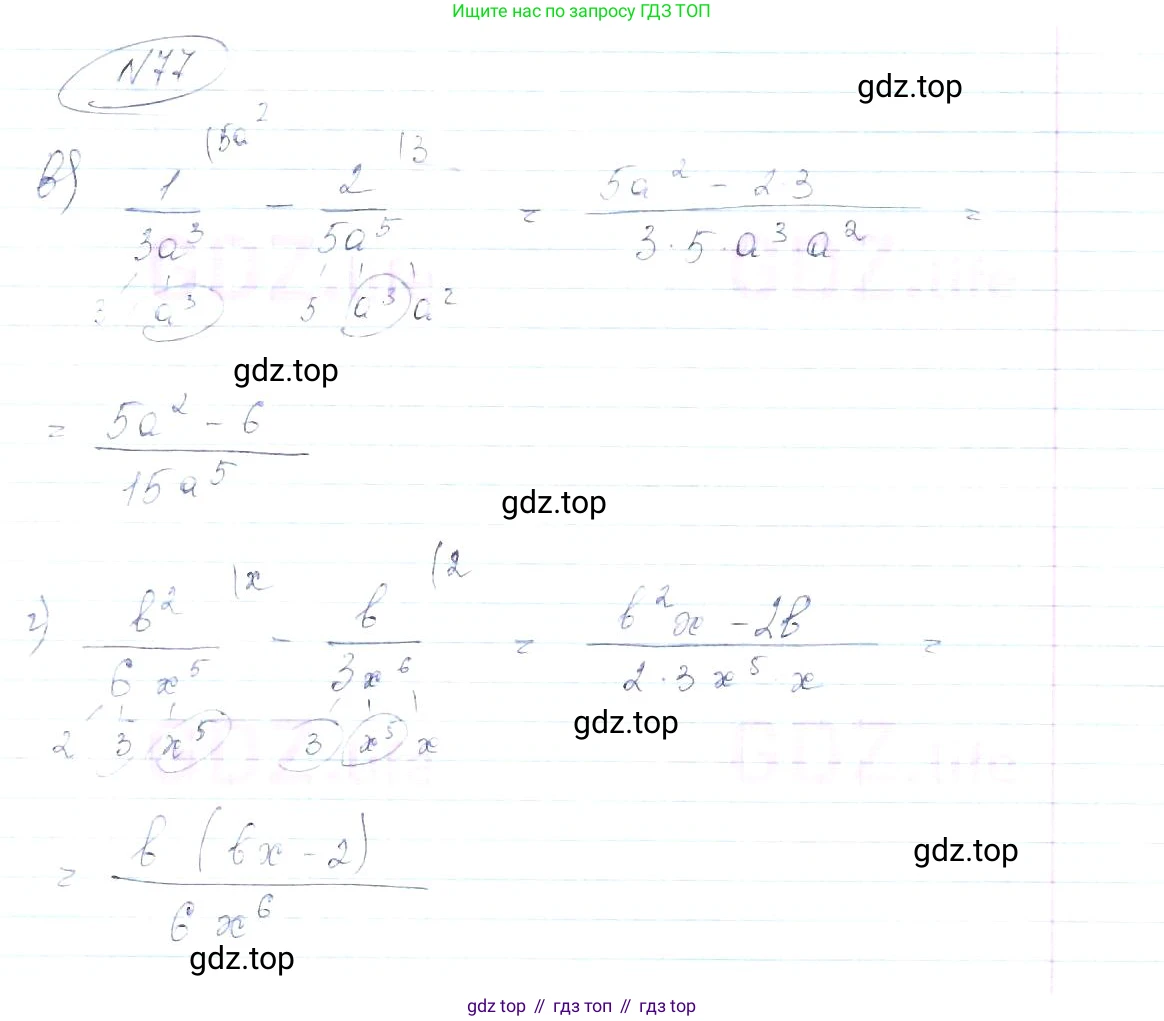 Ищите нас по запросу ГДЗ ТОП
N77
gdz.top
в) 1/(3a³) (5a² - 2/(5a⁵) (3 = (5a² - 2·3)/(3·5·a³·a²) =
3 a³ 5 a³ a²
gdz.top
= (5a² - 6)/(15a⁵)
gdz.top
г) в²/(6x⁵) (x - в/(3x⁶) (2 = (в²x - 2в)/(2·3x⁵·x) =
gdz.top
2 3 x⁵ 3 x⁵ x
= в(вx - 2)/(6x⁶)
gdz.top
gdz.top
gdz top // гдз топ // гдз top